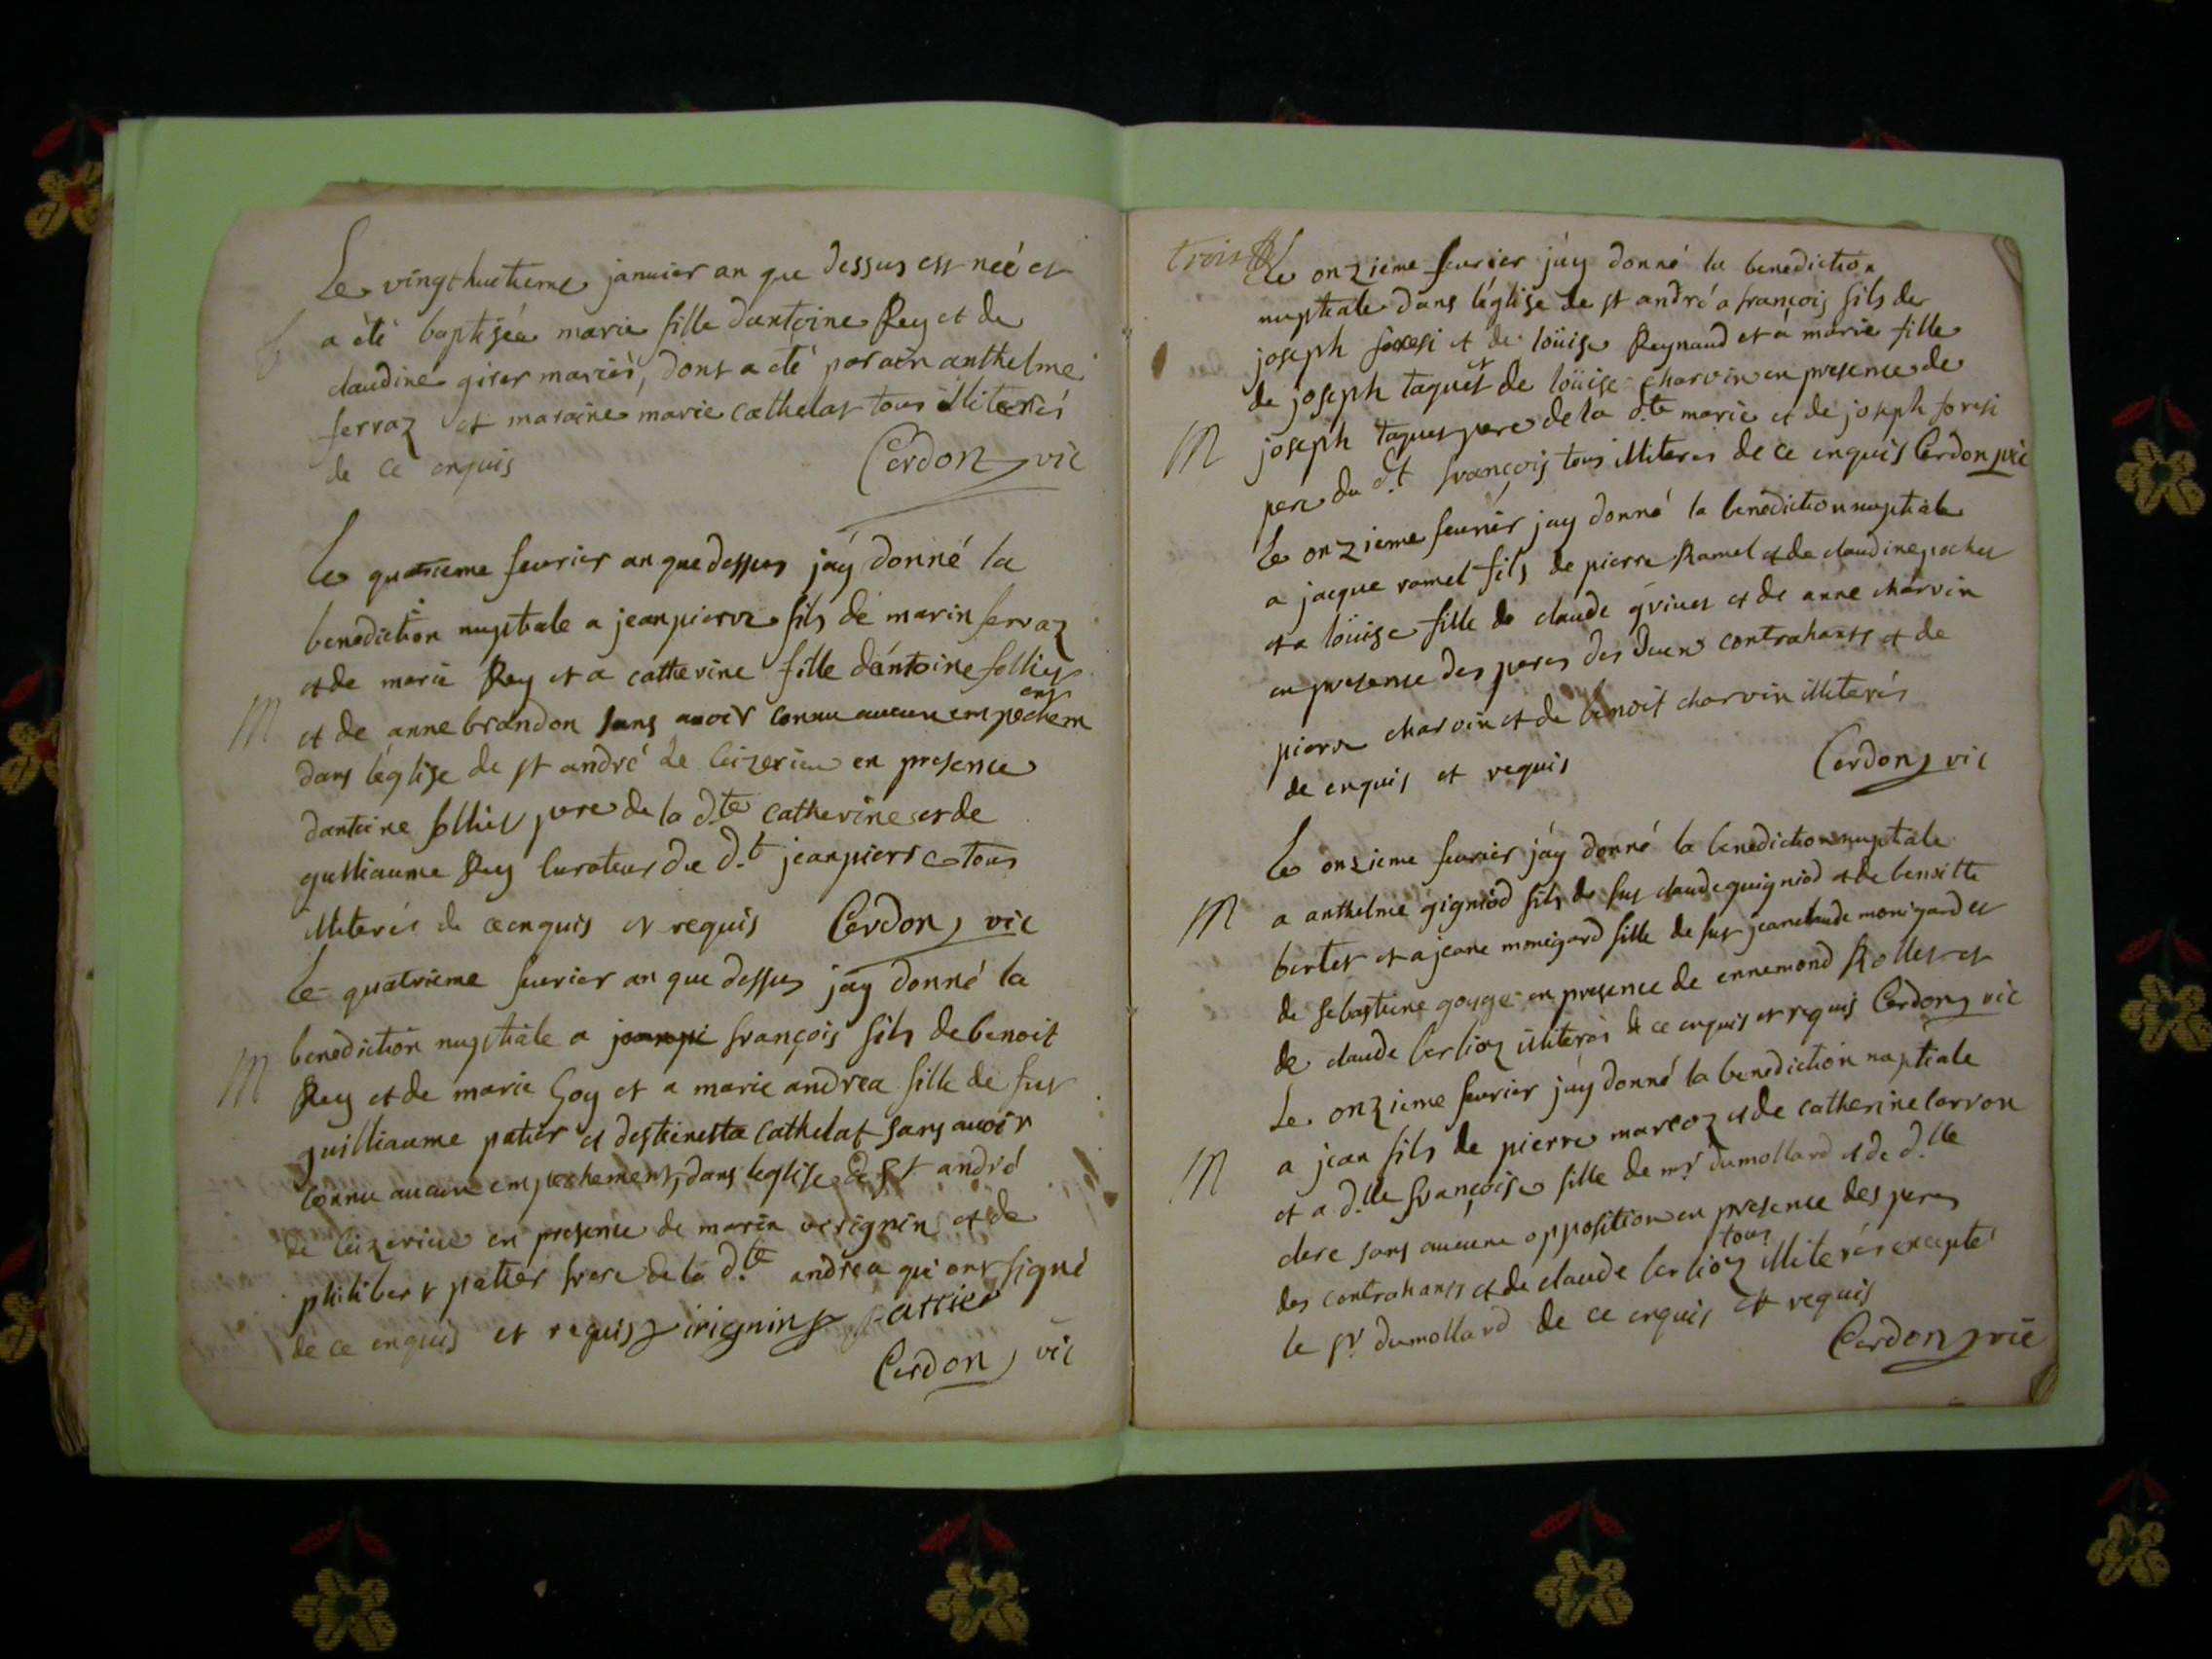 Le vingt huitieme januier an que dessus est neé et
B a èté baptiseé marie fille dantoine Rey et de
claudine giter mariés, dont a eté parain anthelme
ferraz et maraine marie cathelat tous illiterés
de ce enquis Cerdon vic
Le quatrieme feurier an que dessus jáy donné la
benediction nuptiale a jean pierre fils de marin ferraz
et de marie Rey et a catherine fille dántoine folliet
ent
M et de anne brandon sans auoir connu aucun empechem
dans léglise de st andré de Ceizerieu en presence
dantoine folliet pere de la d.te catherine et de
gulliaume Rey Curateur du d.t jean pierre tous
illiterés de ce enquis et requis Cerdon vic
Le quatrieme feurier an que dessus jay donné la
M benediction nuptiale a jeanpi françois fils de benoit
Rey et de marie Goy et a marie andrea fille de fut
guilliaume patier et destienette Cathelat sans auoir
connu aucun empechement, dans leglise de St andré
de Ceizerieu en presence de marin virignin et de
philibert patier frere de la d.te andrea qui ont signé
de ce enquis et requis virignin patties
Cerdon vic
trois
Le onzieme feurier jáy donné la benediction
nuptiale dans léglise de st andré a françois fils de
joseph foresi et de loüise Reynaud et a marie fille
et
de joseph taquet de loüise charvin en presence de
M joseph taquet pere de la d.te marie et de joseph foresi
pere du d.t françois tous illiteres de ce enquis Cerdon vic
Le onzieme feurier jay donné la benediction nuptiale
a jacque ramel fils de pierre Ramel et de claudine pochet
et a loüise fille de claude griuet et de anne charvin
en presence des peres des deux contrahants et de
pierre charvin et de benoit charvin illiterés
de enquis et requis Cerdon vic
Le onzieme feurier jáy donné la benediction nuptiale
M a anthelme gigniod fils de fut claude guigniod et de benoitte
bertet et a jeane monigard fille de fut jean claude monigard et
de sebastiene gouge en presence de ennemond Rollet et
de claude berlioz illiterés de ce enquis et requis Cerdon vic
Le onzieme feurier jay donné la benediction nuptiale
M a jean fils de pierre marcoz et de catherine Carron
et a d.lle françoise fille de mr dumollard et de d.lle
clere sans aucune opposition en presence des peres
tous
des contrahants et de claude berlioz illiterés excepté
le sr dumollard de ce enquis et requis
Cerdon vic